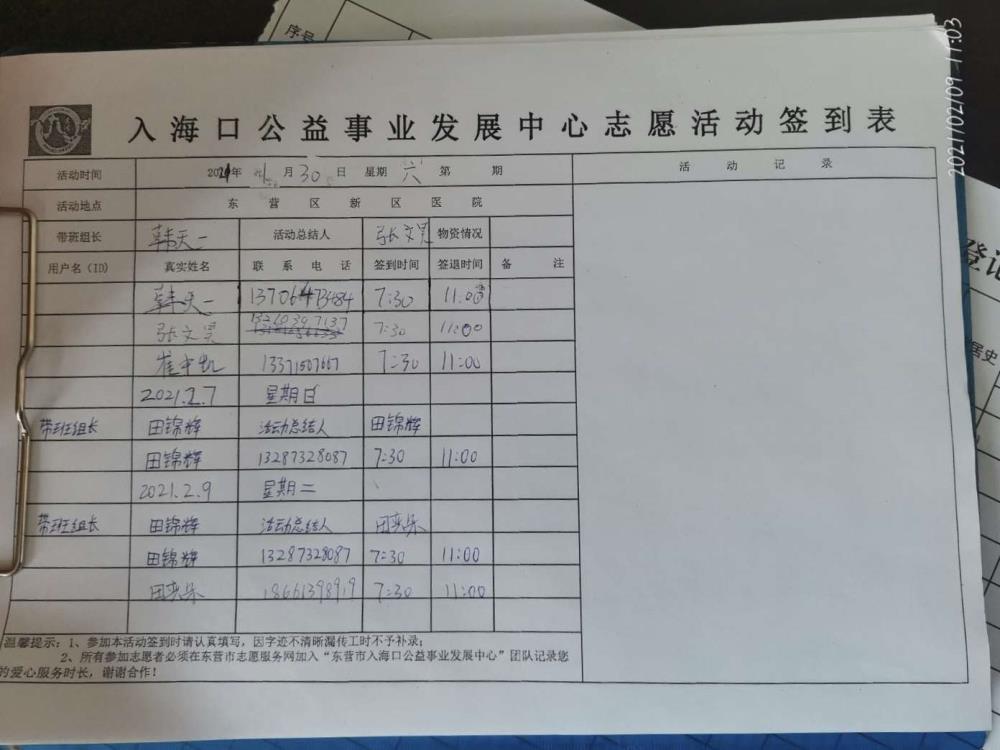 序号
2021/02/09 11:03
入海口公益事业发展中心志愿活动签到表
活动时间 2021年 1月30日 星期六 第 期 活动记录
活动地点 东营区新区医院
带班组长 韩天一 活动总结人 张文昊 物资情况
用户名(ID) 真实姓名 联系电话 签到时间 签退时间 备注
韩天一 13706473484 7:30 11:00
张文昊 13260397137 7:30 11:00
崔 13371507667 7:30 11:00
2021.2.7 星期日
带班组长 田锦辉 活动总结人 田锦辉
田锦辉 13287328087 7:30 11:00
2021.2.9 星期二
带班组长 田锦辉 活动总结人
田锦辉 13287328087 7:30 11:00
18661398919 7:30 11:00
温馨提示:1、参加本活动签到时请认真填写,因字迹不清晰漏传工时不予补录;
2、所有参加志愿者必须在东营市志愿服务网加入“东营市入海口公益事业发展中心”团队记录您
的爱心服务时长,谢谢合作!
登记
居史